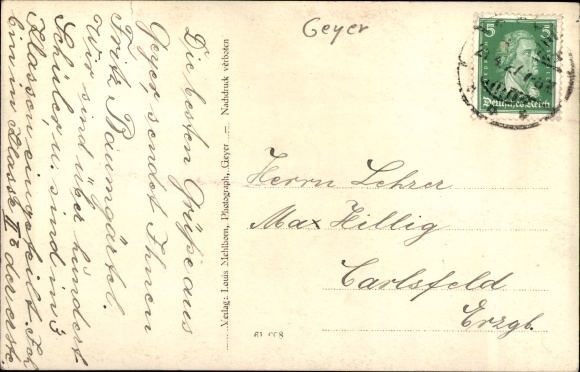 Geyer
Die besten Grüße aus
Geyer sendet Ihnen
Fritz Baumgärtel.
Wir sind über hundert
Schüler u. sind in 3
Klassen eingeteilt. Ich
bin in Klasse II der erste.
Verlag: Louis Mehlhorn, Photograph, Geyer — Nachdruck verboten
5 5
Deutsches Reich
Herrn Lehrer
Max Hillig
Carlsfeld
Erzgb.